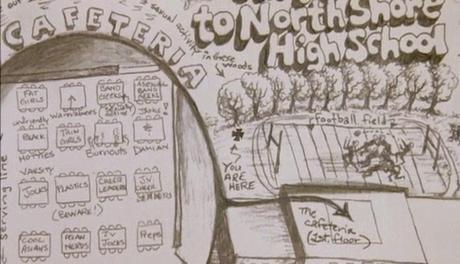 to North Shore
High School
CAFETERIA
sexual activity in these
woods
FAT
GIRLS
BAND
GEEKS
BAND
GEEKS
unfriendly
BLACK
HOTTIES
THIN
GIRLS
Burnouts
DAMIAN
VARSITY
JOCKS
PLASTICS
(BEWARE!)
CHEER
LEADERS
J.V.
CHEER
COOL
ASIANS
ASIAN
NERDS
J.V.
JOCKS
Preps
Serving line
football field
YOU
ARE
HERE
The
cafeteria
(1st floor)